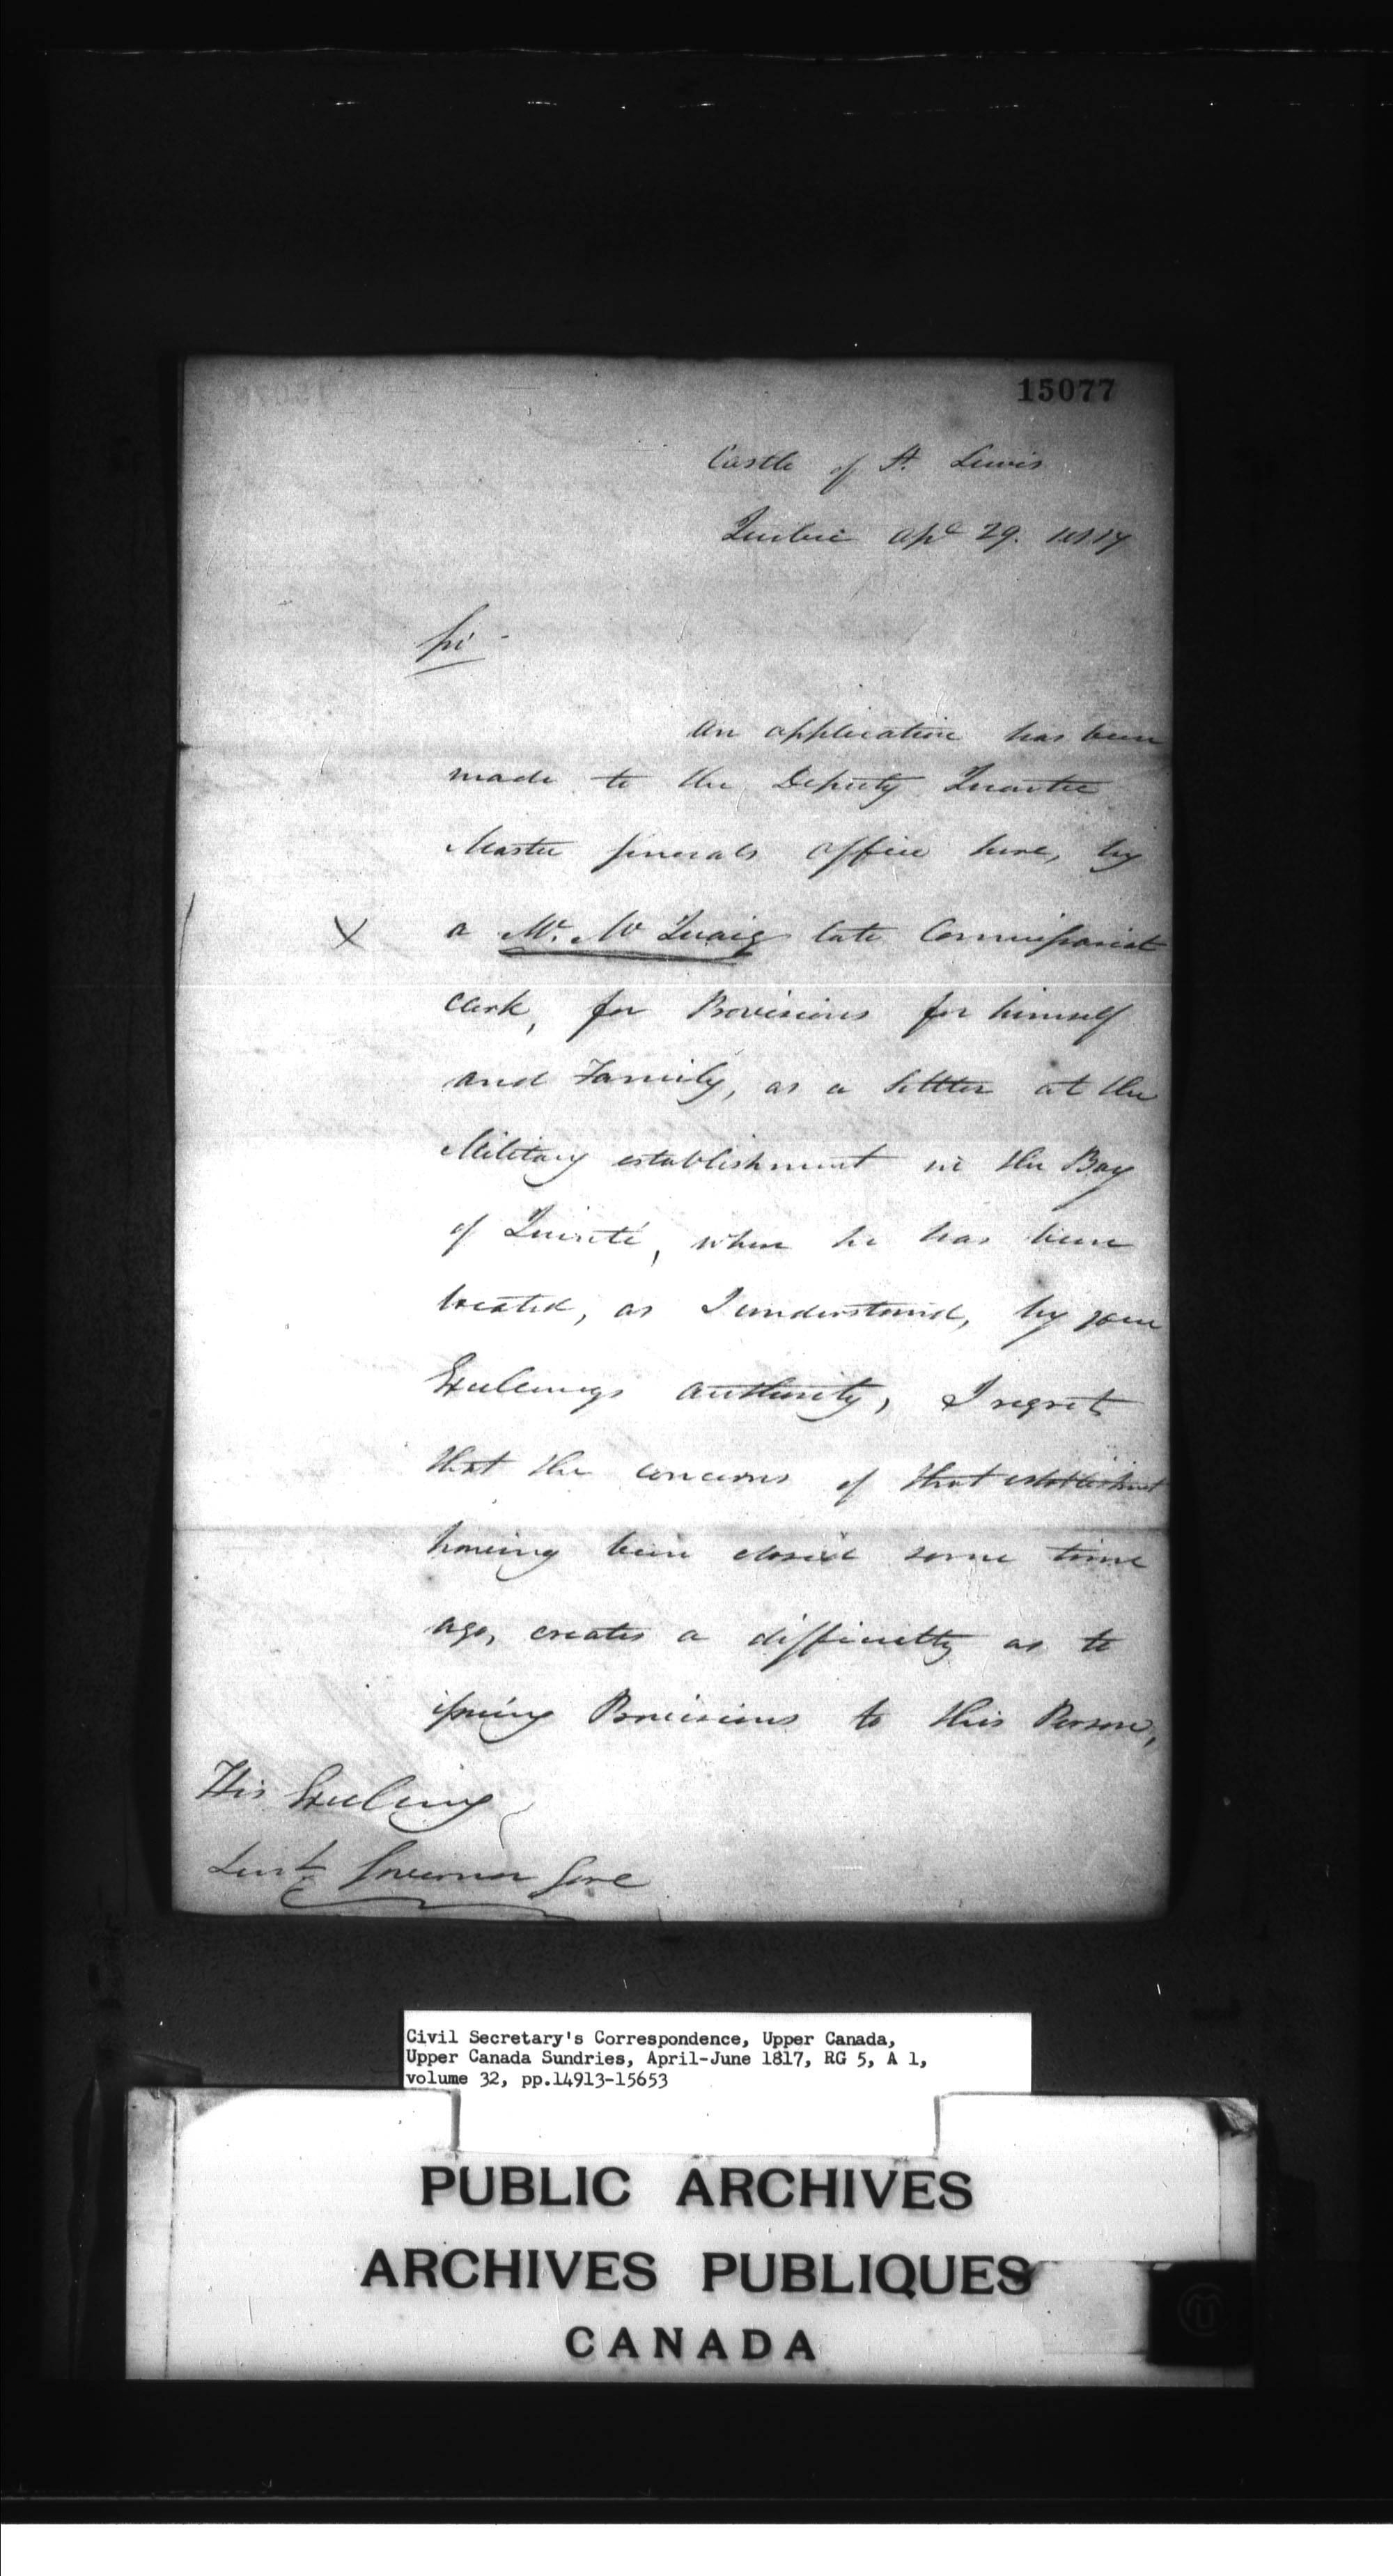 15077
Castle of St. Lewis
Quebec Apl 29. 1817
Sir
An application has been
made to the Deputy Quarter
Master Generals office here, by
X a Mr. Mc Quaig late Commissariat
Clerk, for Provisions for himself
and Family, as a Settler at the
Military establishment in the Bay
of Quinté, where he has been
located, as I understand, by your
Excellencys authority, I regret
that the concerns of that establishmt
having been closed some time
ago, creates a difficulty as to
issuing Provisions to this Person,
His Excellency
Lieut. Governor Gore
Civil Secretary's Correspondence, Upper Canada,
Upper Canada Sundries, April-June 1817, RG 5, A 1,
volume 32, pp.14913-15653
PUBLIC ARCHIVES
ARCHIVES PUBLIQUES
CANADA